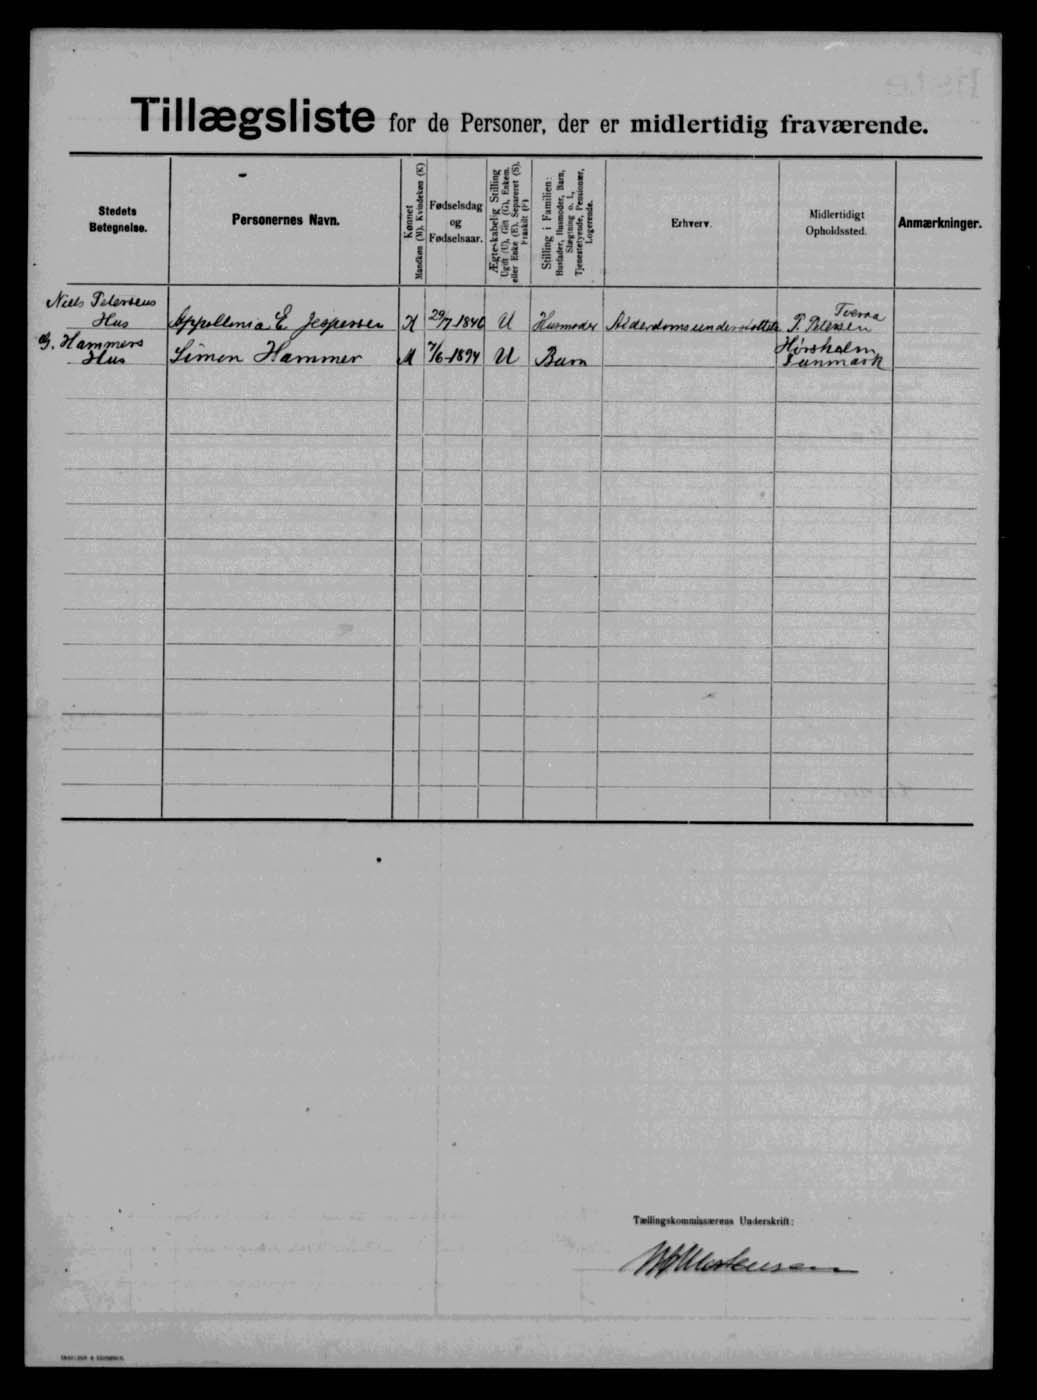 Tillægsliste for de Personer, der er midlertidig fraværende.
Stedets
Betegnelse.
Personernes Navn.
Kønnet
Mandkøn (M). Kvindekøn (K)
Fødselsdag
og
Fødselsaar.
Ægteskabelig Stilling
Ugift (U), Gift (G), Enkem.
eller Enke (E), Separeret (S),
Fraskilt (F)
Stilling i Familien:
Husfader, Husmoder, Barn,
Slægtning o. l.,
Tjenestetyende, Pensionær,
Logerende.
Erhverv.
Midlertidigt
Opholdssted.
Anmærkninger.
Niels Petersens
Hus
Appollonia E. Jespersen K 29/7-1840 U Husmoder Alderdomsunderstøttet
Tveraa
P. Petersen
G. Hammers
Hus
Simon Hammer M 7/6-1894 U Barn
Hørsholm
Danmark
Tællingskommissærens Underskrift: